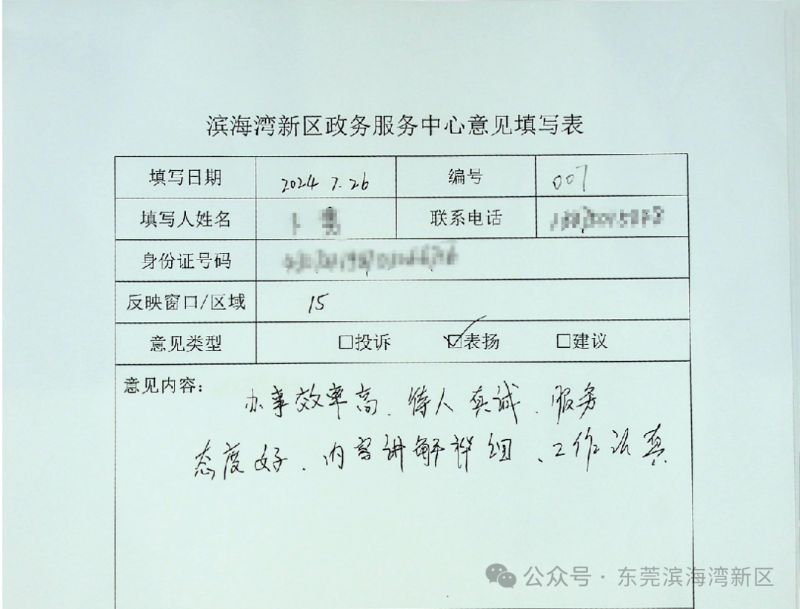 滨海湾新区政务服务中心意见填写表
填写日期 2024 7.26 编号 007
填写人姓名 联系电话
身份证号码
反映窗口/区域 15
意见类型 □投诉 ☑表扬 □建议
意见内容：
办事效率高、待人真诚、服务
态度好、内容讲解详细、工作认真
公众号·东莞滨海湾新区